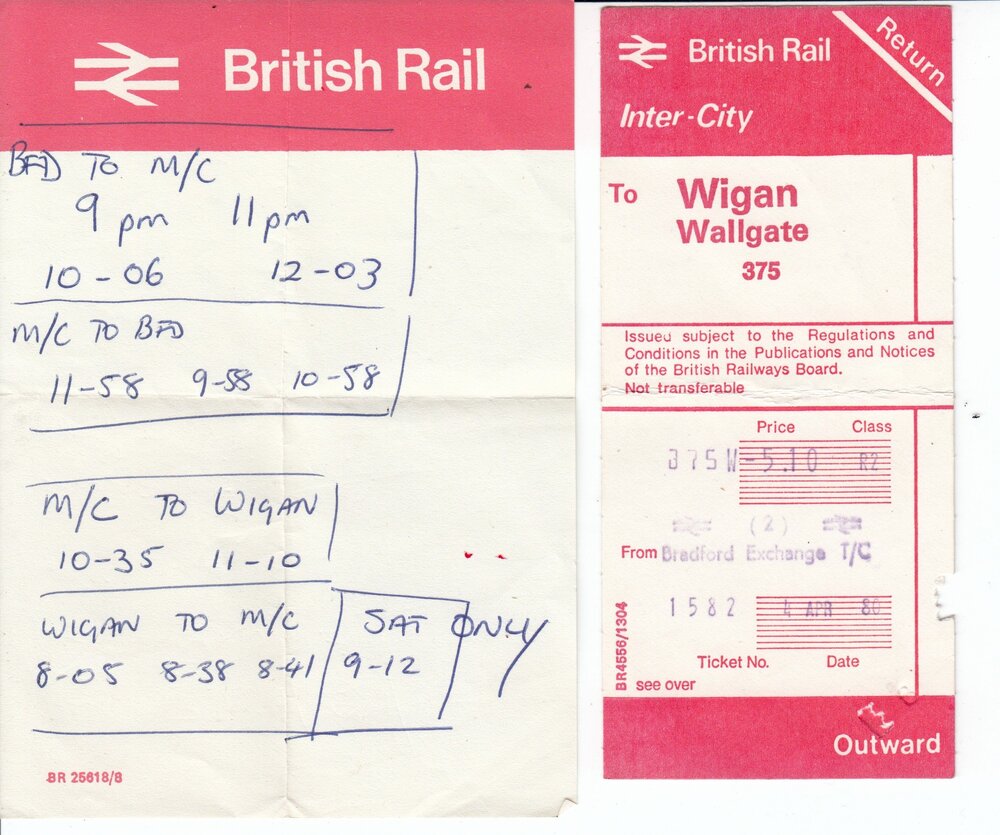 British Rail
BFD TO M/C
9 pm 11 pm
10-06 12-03
M/C TO BFD
11-58 9-58 10-58
M/C TO WIGAN
10-35 11-10
WIGAN TO M/C SAT ONLY
8-05 8-38 8-41 9-12
BR 25618/8
British Rail Return
Inter-City
To Wigan
Wallgate
375
Issued subject to the Regulations and
Conditions in the Publications and Notices
of the British Railways Board.
Not transferable
Price Class
375 W -5.10 R2
(2)
From Bradford Exchange T/C
1582 4 APR 80
Ticket No. Date
BR4556/1304
see over
Outward